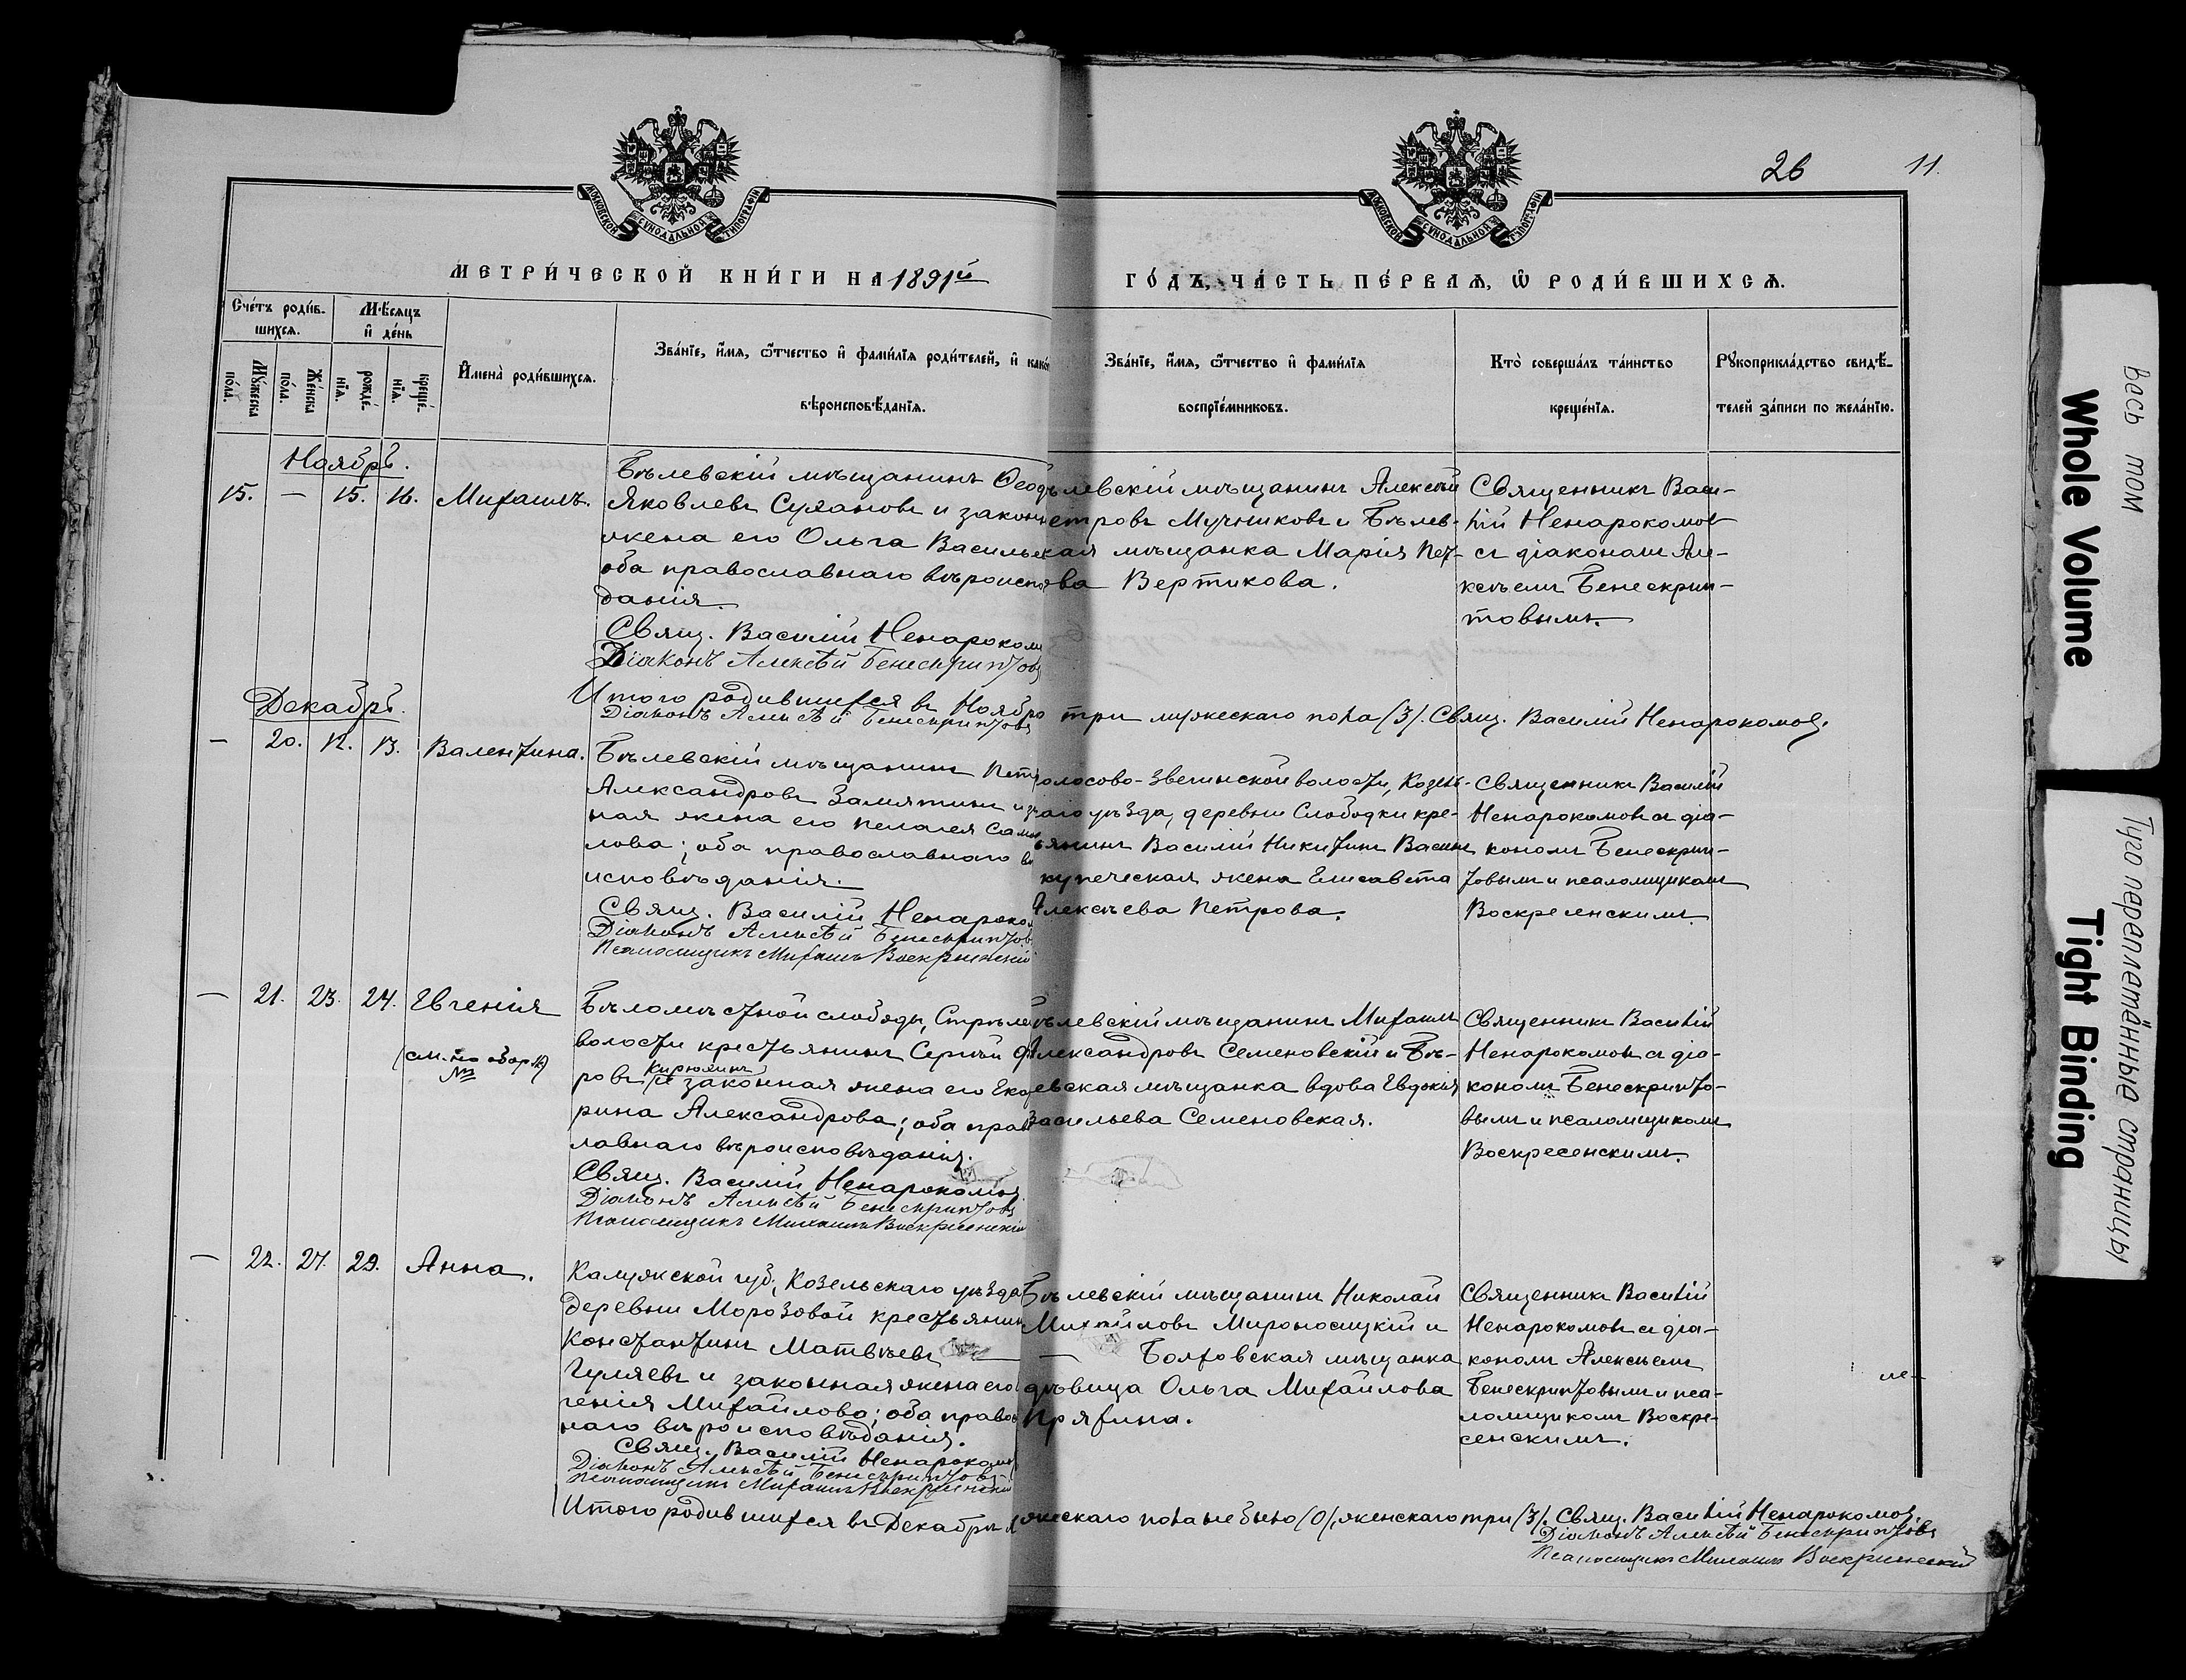 26
11.
МОСКОВСКОЙ СѴНОДАЛЬНОЙ ТИПОГРАФІИ
МОСКОВСКОЙ СѴНОДАЛЬНОЙ ТИПОГРАФІИ
МЕТРИ́ЧЕСКОЙ КНИ́ГИ НА 1891й
ГО́ДЪ, ЧА́СТЬ ПЕ́РВАѦ, Ѡ҆ РОДИ́ВШИХСѦ.
Сче́тъ роди́в-
шихсѧ.
Мѣ́сѧцъ
и҆ де́нь
Мꙋ́жеска
по́ла.
Же́нска
по́ла.
рожде́-
нїѧ.
креще́-
нїѧ.
И҆мена̀ роди́вшихсѧ.
Зва́нїе, и҆́мѧ, ѻ҆́тчество и҆ фами́лїѧ роди́телей, и҆ како́
вѣроисповѣ́данїѧ.
Зва́нїе, и҆́мѧ, ѻ҆́тчество и҆ фами́лїѧ
воспрїе́мниковъ.
Кто̀ соверша́лъ та́инство
креще́нїѧ.
Рꙋкоприкла́дство свидѣ́-
телей за́писи по жела́нїю.
Ноябрь.
15. — 15. 16. Михаилъ.
Бѣлевскій мѣщанинъ Ѳеод
Яковлевъ Сухановъ и закон
жена его Ольга Василье
оба православнаго вѣроиспо
данія.
Свящ. Василій Ненароком
Діаконъ Алексѣй Бенескриптовъ
ѣлевскій мѣщанинъ Алексѣй
етровъ Мучниковъ и Бѣлев-
кая мѣщанка Марія Пет-
ва Вертикова.
Священникъ Васи-
лій Ненарокомовъ
съ діакономъ Але-
ксѣемъ Бенескрип-
товымъ.
Итого родившихся въ Ноябр
три мужескаго пола (3). Свящ. Василій Ненарокомов.
Діаконъ Алексѣй Бенескриптовъ
Декабрь.
— 20. 12. 13. Валентина.
Бѣлевскій мѣщанинъ Петр
Александровъ Замятинъ и з
ная жена его Пелагея Само
лова; оба православнаго в
исповѣданія.
Свящ. Василій Ненароком
Діаконъ Алексѣй Бенескриптов
Псаломщикъ Михаилъ Воскресенскій
олосово-Звягинской волости, Козель-
аго уѣзда, деревни Слободки кре-
ьянинъ Василій Никитинъ Васин
купеческая жена Елисавета
Алексѣева Петрова.
Священникъ Василій
Ненарокомовъ съ діа-
кономъ Бенескрип-
товымъ и псаломщикомъ
Воскресенскимъ.
— 21. 23. 24. Евгенія
(см. на обор)
Бѣломѣстной слободы, Стрѣле
волости крестьянинъ Сергѣй Ѳ
ровъ Кирюхинъ и законная жена его Ека
рина Александрова; оба прав
лавнаго вѣроисповѣданія.
Свящ. Василій Ненарокомов
Діаконъ Алексѣй Бенескриптовъ
Псаломщикъ Михаилъ Воскресенскій
ѣлевскій мѣщанинъ Михаилъ
Александровъ Семеновскій и Бѣ-
евская мѣщанка вдова Евдокія
Васильева Семеновская.
Священникъ Василій
Ненарокомовъ съ діа-
кономъ Бенескрипто-
вымъ и псаломщикомъ
Воскресенскимъ.
— 22. 27. 29. Анна.
Калужской губ., Козельскаго уѣзда
деревни Морозовой крестьянин
Константинъ Матвѣевъ
Гуляевъ и законная жена его
генія Михайлова; оба правос
наго вѣроисповѣданія.
Свящ. Василій Ненароком
Діаконъ Алексѣй Бенескриптовъ
Псаломщикъ Михаилъ Воскресенскій
Бѣлевскій мѣщанинъ Николай
Михайловъ Мироносицкій и
— Болховская мѣщанка
дѣвица Ольга Михайлова
Пряхина.
Священникъ Василій
Ненарокомовъ съ діа-
кономъ Алексѣемъ
Бенескриптовымъ и пса-
ломщикомъ Воскре-
сенскимъ.
Итого родившихся въ Декабрѣ м
жескаго пола не было (0), женскаго три (3). Свящ. Василій Ненарокомов.
Діаконъ Алексѣй Бенескриптовъ
Псаломщикъ Михаилъ Воскресенскій
весь том
Whole Volume
Туго переплетённые страницы
Tight Binding